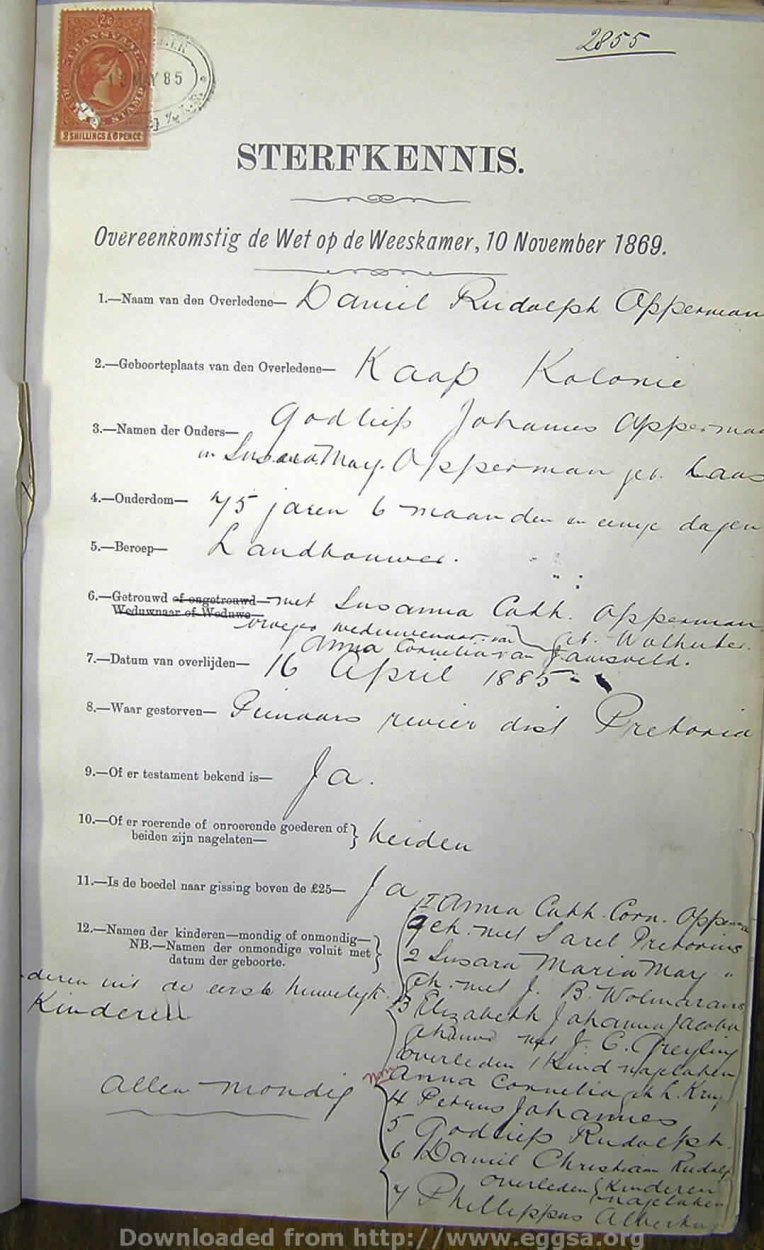 2855
TRANSVAAL
STAMP
2 SHILLINGS & 6 PENCE
MAY 85
STERFKENNIS.
Overeenkomstig de Wet op de Weeskamer, 10 November 1869.
1.—Naam van den Overledene— Daniel Rudolph Opperman
2.—Geboorteplaats van den Overledene— Kaap Kolonie
3.—Namen der Ouders— Godliep Johannes Opperman
en Susara May. Opperman geb. Laas
4.—Ouderdom— 75 jaren 6 maanden en eenige dagen
5.—Beroep— Landbouwer.
6.—Getrouwd of ongetrouwd— met Susanna Cath. Opperman
Weduwnaar of Weduwe— vroeger weduwenaar van geb. Wolhuter.
Anna Cornelia van Jaarsveld.
7.—Datum van overlijden— 16 April 1885
8.—Waar gestorven— Pienaars revier dist Pretoria
9.—Of er testament bekend is— Ja.
10.—Of er roerende of onroerende goederen of
beiden zijn nagelaten— beiden
11.—Is de boedel naar gissing boven de £25— Ja
12.—Namen der kinderen—mondig of onmondig—
NB.—Namen der onmondige voluit met
datum der geboorte.
deren uit de eerste huwelyk
Kinderen
Allen mondig
1 Anna Cath. Corn. Opperman
geh. met Sarel Pretorius
2 Susara Maria May "
geh. met J. B. Wolmarans
3 Elizabeth Johanna Jacoba
gehuwd met J. C. Greyling
overleden 1 Kind nagelaten
Anna Cornelia geh. Kruger
4 Petrus Johannes
5 Godliep Rudolph.
6 Daniel Christiaan Rudolf
overleden Kinderen
nagelaten
7 Phillippus Albertus
Downloaded from http://www.eggsa.org